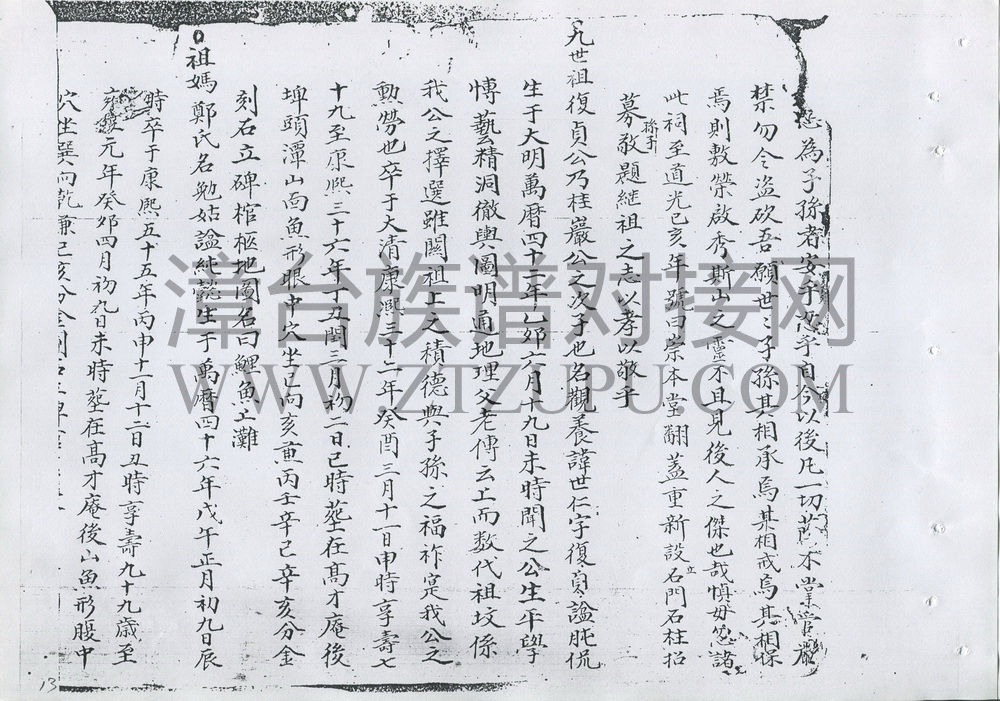 為子孫者安乎忍乎自今以後凡一切蔭木當嚴
禁勿令盜砍吾願世々子孫其相承焉其相戒焉其相保
焉則敷榮啟秀斯山之靈不且見後人之傑也哉慎毋忽諸
此祠至道光已亥年號曰崇本堂翻蓋重新設立石門石柱招
募孫子敬題繼祖之志以孝以敬乎
九世祖復貞公乃桂巖公之次子也名觀養諱世仁字復貞諡
生于大明萬曆四十三年乙卯六月十九日未時聞之公生平學
博藝精洞徹輿圖明通地理父老傳云上而数代祖坟係
我公之擇選雖關祖上之積德與子孫之福祚寔我公之
勳勞也卒于大清康熙三十二年癸酉三月十一日申時享壽七
十九至康熙三十六年丁丑閏三月初二日巳時塟在髙才庵後
埤頭潭山面魚形眼中穴坐巳向亥兼丙壬辛巳辛亥分金
刻石立碑棺柩地圖名曰鯉魚上灘
祖媽鄭氏名勉姑諡純懿生于萬曆四十六年戊午正月初九日辰
時卒于康熙五十五年丙申十一月十二日丑時享壽九十九歲至
元年癸卯四月初九日未時塟在髙才庵後山魚形腹中
穴坐巽向乾兼巳亥分金
漳台族谱对接网
WWW.ZTZUPU.COM
13